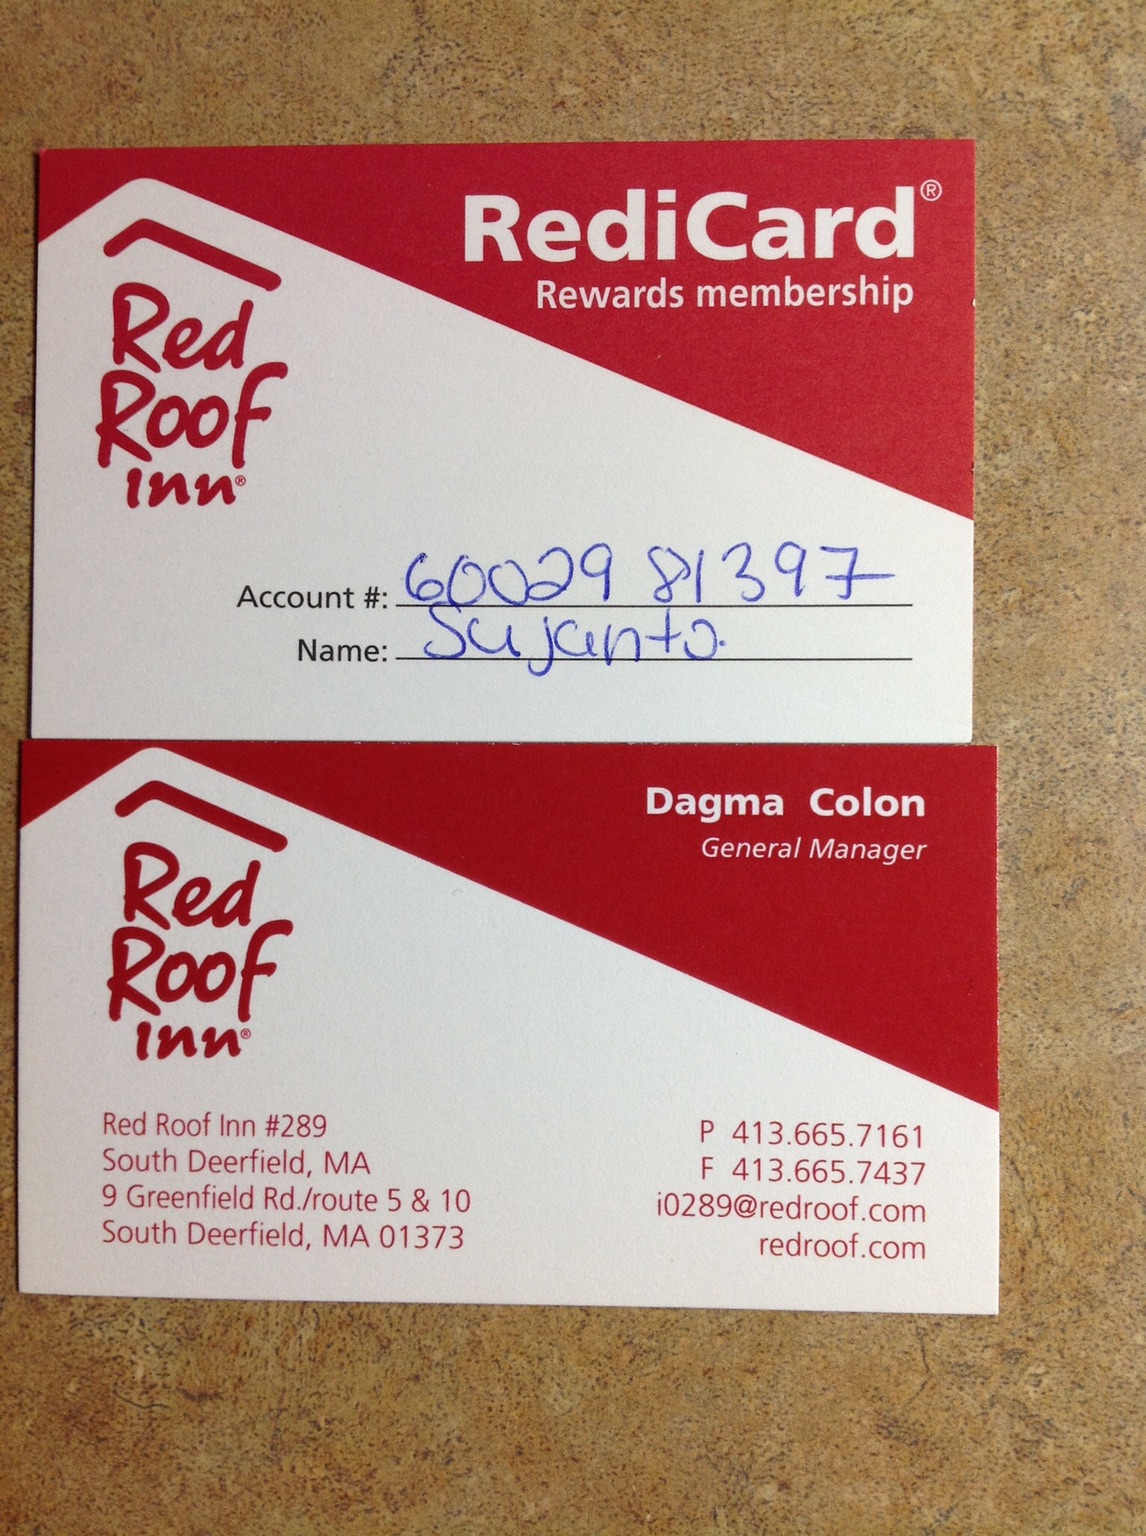 RediCard®
Rewards membership
Red
Roof
Inn®
Account #: 6002981397
Name: Sujanto.
Dagma Colon
General Manager
Red
Roof
Inn®
Red Roof Inn #289
South Deerfield, MA
9 Greenfield Rd./route 5 & 10
South Deerfield, MA 01373
P 413.665.7161
F 413.665.7437
i0289@redroof.com
redroof.com